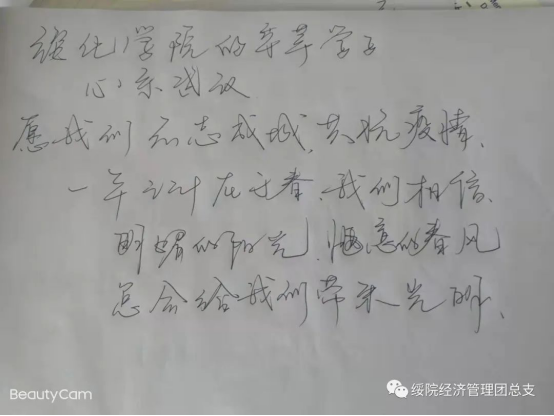 绥化学院的莘莘学子
心系武汉
愿我们众志成城,共抗疫情、
一年之计在于春,我们相信、
明媚的阳光,惬意的春风
总会给我们带来光明、
BeautyCam
绥院经济管理团总支